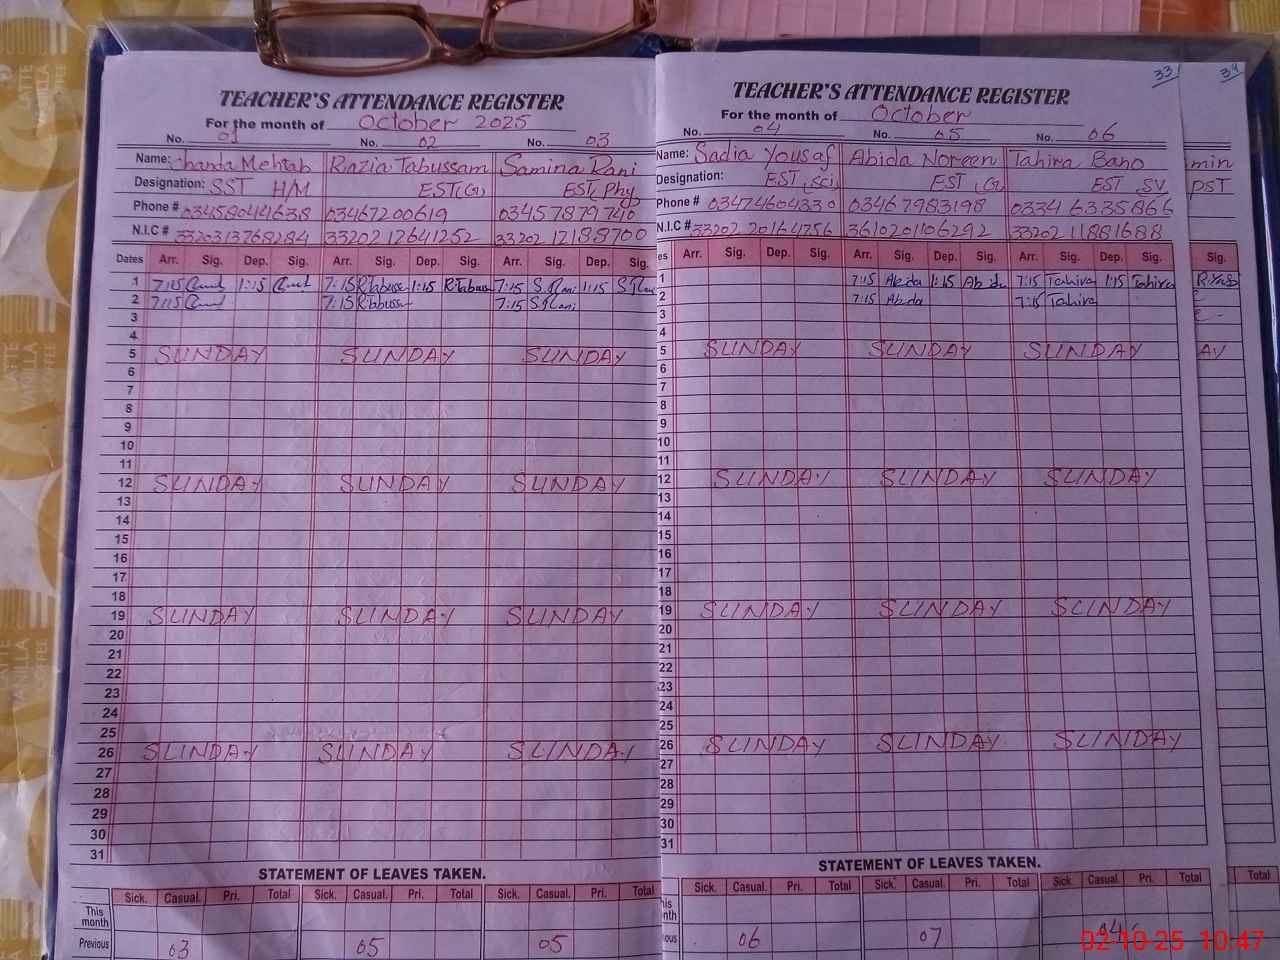 33
34
TEACHER'S ATTENDANCE REGISTER
For the month of October 2025
No. 01 No. 02 No. 03
Name: Chanda Mehtab Razia Tabussam Samina Rani
Designation: SST H/M EST(G) EST, Phy
Phone # 03458044638 03467200619 03457879740
N.I.C # 3320313768284 3320212641252 3320212188700
Dates Arr. Sig. Dep. Sig. Arr. Sig. Dep. Sig. Arr. Sig. Dep. Sig.
1 7:15 1:15 7:15 R.Tabuss 1:15 R.Tabuss 7:15 S.Rani 1:15 S.Rani
2 7:15 7:15 R.Tabuss 7:15 S.Rani
3
4
5 SUNDAY SUNDAY SUNDAY
6
7
8
9
10
11
12 SUNDAY SUNDAY SUNDAY
13
14
15
16
17
18
19 SUNDAY SUNDAY SUNDAY
20
21
22
23
24
25
26 SUNDAY SUNDAY SUNDAY
27
28
29
30
31
STATEMENT OF LEAVES TAKEN.
Sick. Casual. Pri. Total Sick. Casual. Pri. Total Sick. Casual. Pri. Total
This month
Previous 03 05 05
TEACHER'S ATTENDANCE REGISTER
For the month of October
No. 04 No. 05 No. 06
Name: Sadia Yousaf Abida Noreen Tahira Bano
Designation: EST, Sci EST, G EST, SV
Phone # 03474604330 03467983198 03346335866
N.I.C # 3320220164756 3610201106292 3320211881688
es Arr. Sig. Dep. Sig. Arr. Sig. Dep. Sig. Arr. Sig. Dep. Sig.
1 7:15 Abida 1:15 Abida 7:15 Tahira 1:15 Tahira
2 7:15 Abida 7:15 Tahira
3
4
5 SUNDAY SUNDAY SUNDAY
6
7
8
9
10
11
12 SUNDAY SUNDAY SUNDAY
13
14
15
16
17
18
19 SUNDAY SUNDAY SUNDAY
20
21
22
23
24
25
26 SUNDAY SUNDAY SUNDAY
27
28
29
30
31
STATEMENT OF LEAVES TAKEN.
Sick. Casual. Pri. Total Sick. Casual. Pri. Total Sick. Casual. Pri. Total
his nth
ious 06 07 04
min
PST
Sig.
AY
Total
LATTE
VANILLA
COFFEE
02-10-25 10:47